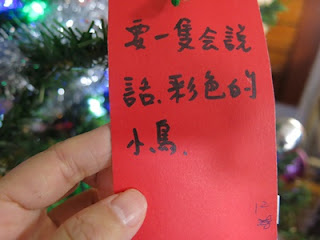 要一隻会說
話、彩色的
小鳥、